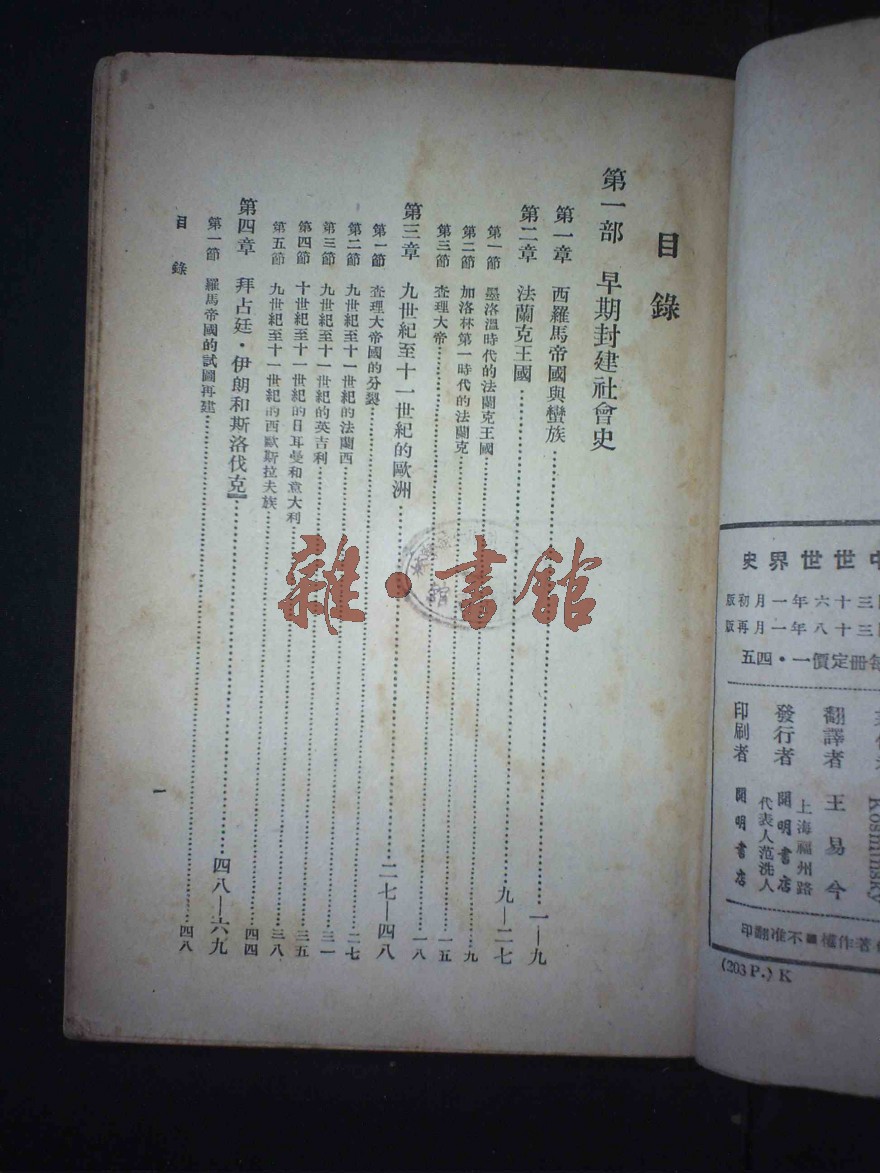 目錄
第一部 早期封建社會史
第一章 西羅馬帝國與蠻族……一—九
第二章 法蘭克王國……九—二七
第一節 墨洛溫時代的法蘭克王國……九
第二節 加洛林第一時代的法蘭克……一五
第三節 查理大帝……一八
第三章 九世紀至十一世紀的歐洲……二七—四八
第一節 查理大帝國的分裂……二七
第二節 九世紀至十一世紀的法蘭西……三一
第三節 九世紀至十一世紀的英吉利……三五
第四節 十世紀至十一世紀的日耳曼和意大利……三八
第五節 九世紀至十一世紀的西歐斯拉夫族……四四
第四章 拜占廷・伊朗和斯洛伐克……四八—六九
第一節 羅馬帝國的試圖再建……四八
目錄
一
雜・書館
中世世界史
三十六年一月初版
三十八年一月再版
每册定價一・四五
Kosminsky
翻譯者 王易今
發行者 開明書店
上海福州路
代表人范洗人
印刷者 開明書店
著作權■不准翻印
(203 P.) K